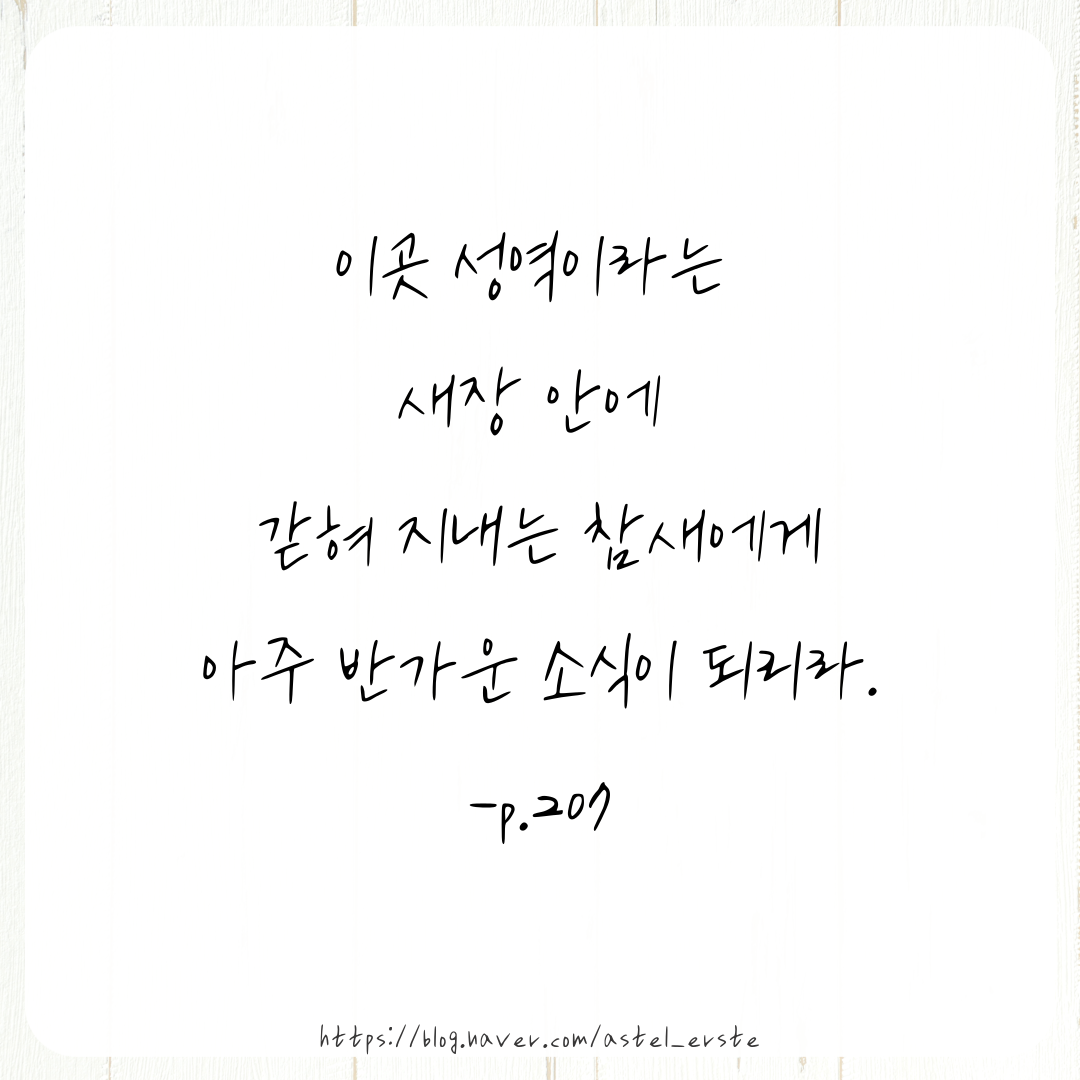 이곳 성역이라는
새장 안에
갇혀 지내는 참새에게
아주 반가운 소식이 되리라.
-p.207
https://blog.naver.com/astel_erste